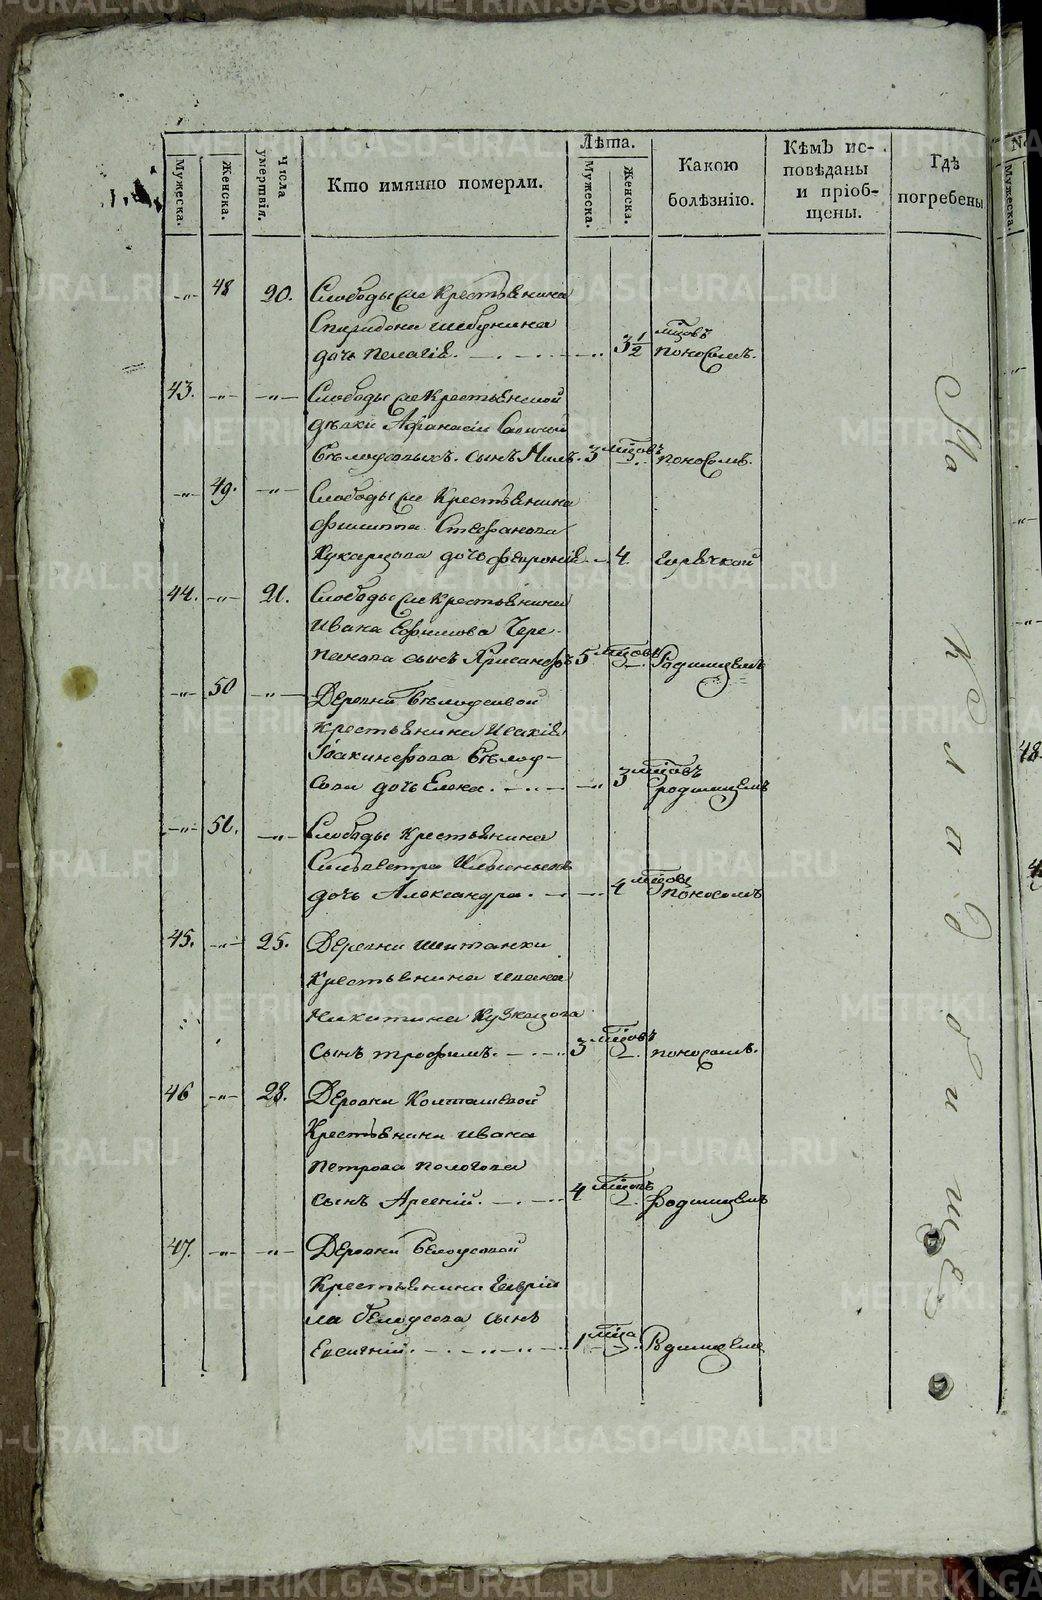 Мужеска.
Женска.
Числа умертвiя.
Кто имянно померли.
Лѣта.
Мужеска.
Женска.
Какою болѣзнiю.
Кѣмъ ис-
повѣданы
и прiоб-
щены.
Гдѣ
погребены
48 20. Слободы сее Крестьянина
Спиридона Шебунина
дочь Пелагiя. 3 1/2 мцовъ поносомъ.
43. Слободы сее Крестьянской
дѣвки Афанасiи
Бѣлоусовыхъ сынъ Нилъ. 3 мцовъ поносомъ.
49. Слободы сее Крестьянина
Филиппа Стефанова
дочь Феврониѣ 4 горячкой
44. 21. Слободы сее Крестьянина
Ивана Ефимова Чере-
панова сынъ Хрисанфъ 5 мцовъ Родимцемъ
50 Деревни Бѣлоусовой
Крестьянина
Iоакинфова Бѣлоу-
сова дочь Елена. 3 мцовъ родимцемъ
51. Слободы Крестьянина
Сильвестра
дочь Александра. 4 мцовъ поносомъ
45. 25. Деревни Шипланки
Крестьянина Ивана
Никитина
сынъ Трофимъ. 3 мцовъ поносомъ.
46 28. Деревни Колташевой
Крестьянина Ивана
Петрова Пологова
сынъ Арсенiй. 4 мцовъ Родимцемъ
47. Деревни Белоусовой
Крестьянина Гаврiи
ла Белоусова сынъ
Евсигнiй. 1 мца Родимцемъ
На кладбищѣ
Мужеска.
48.
METRIKI.GASO-URAL.RU